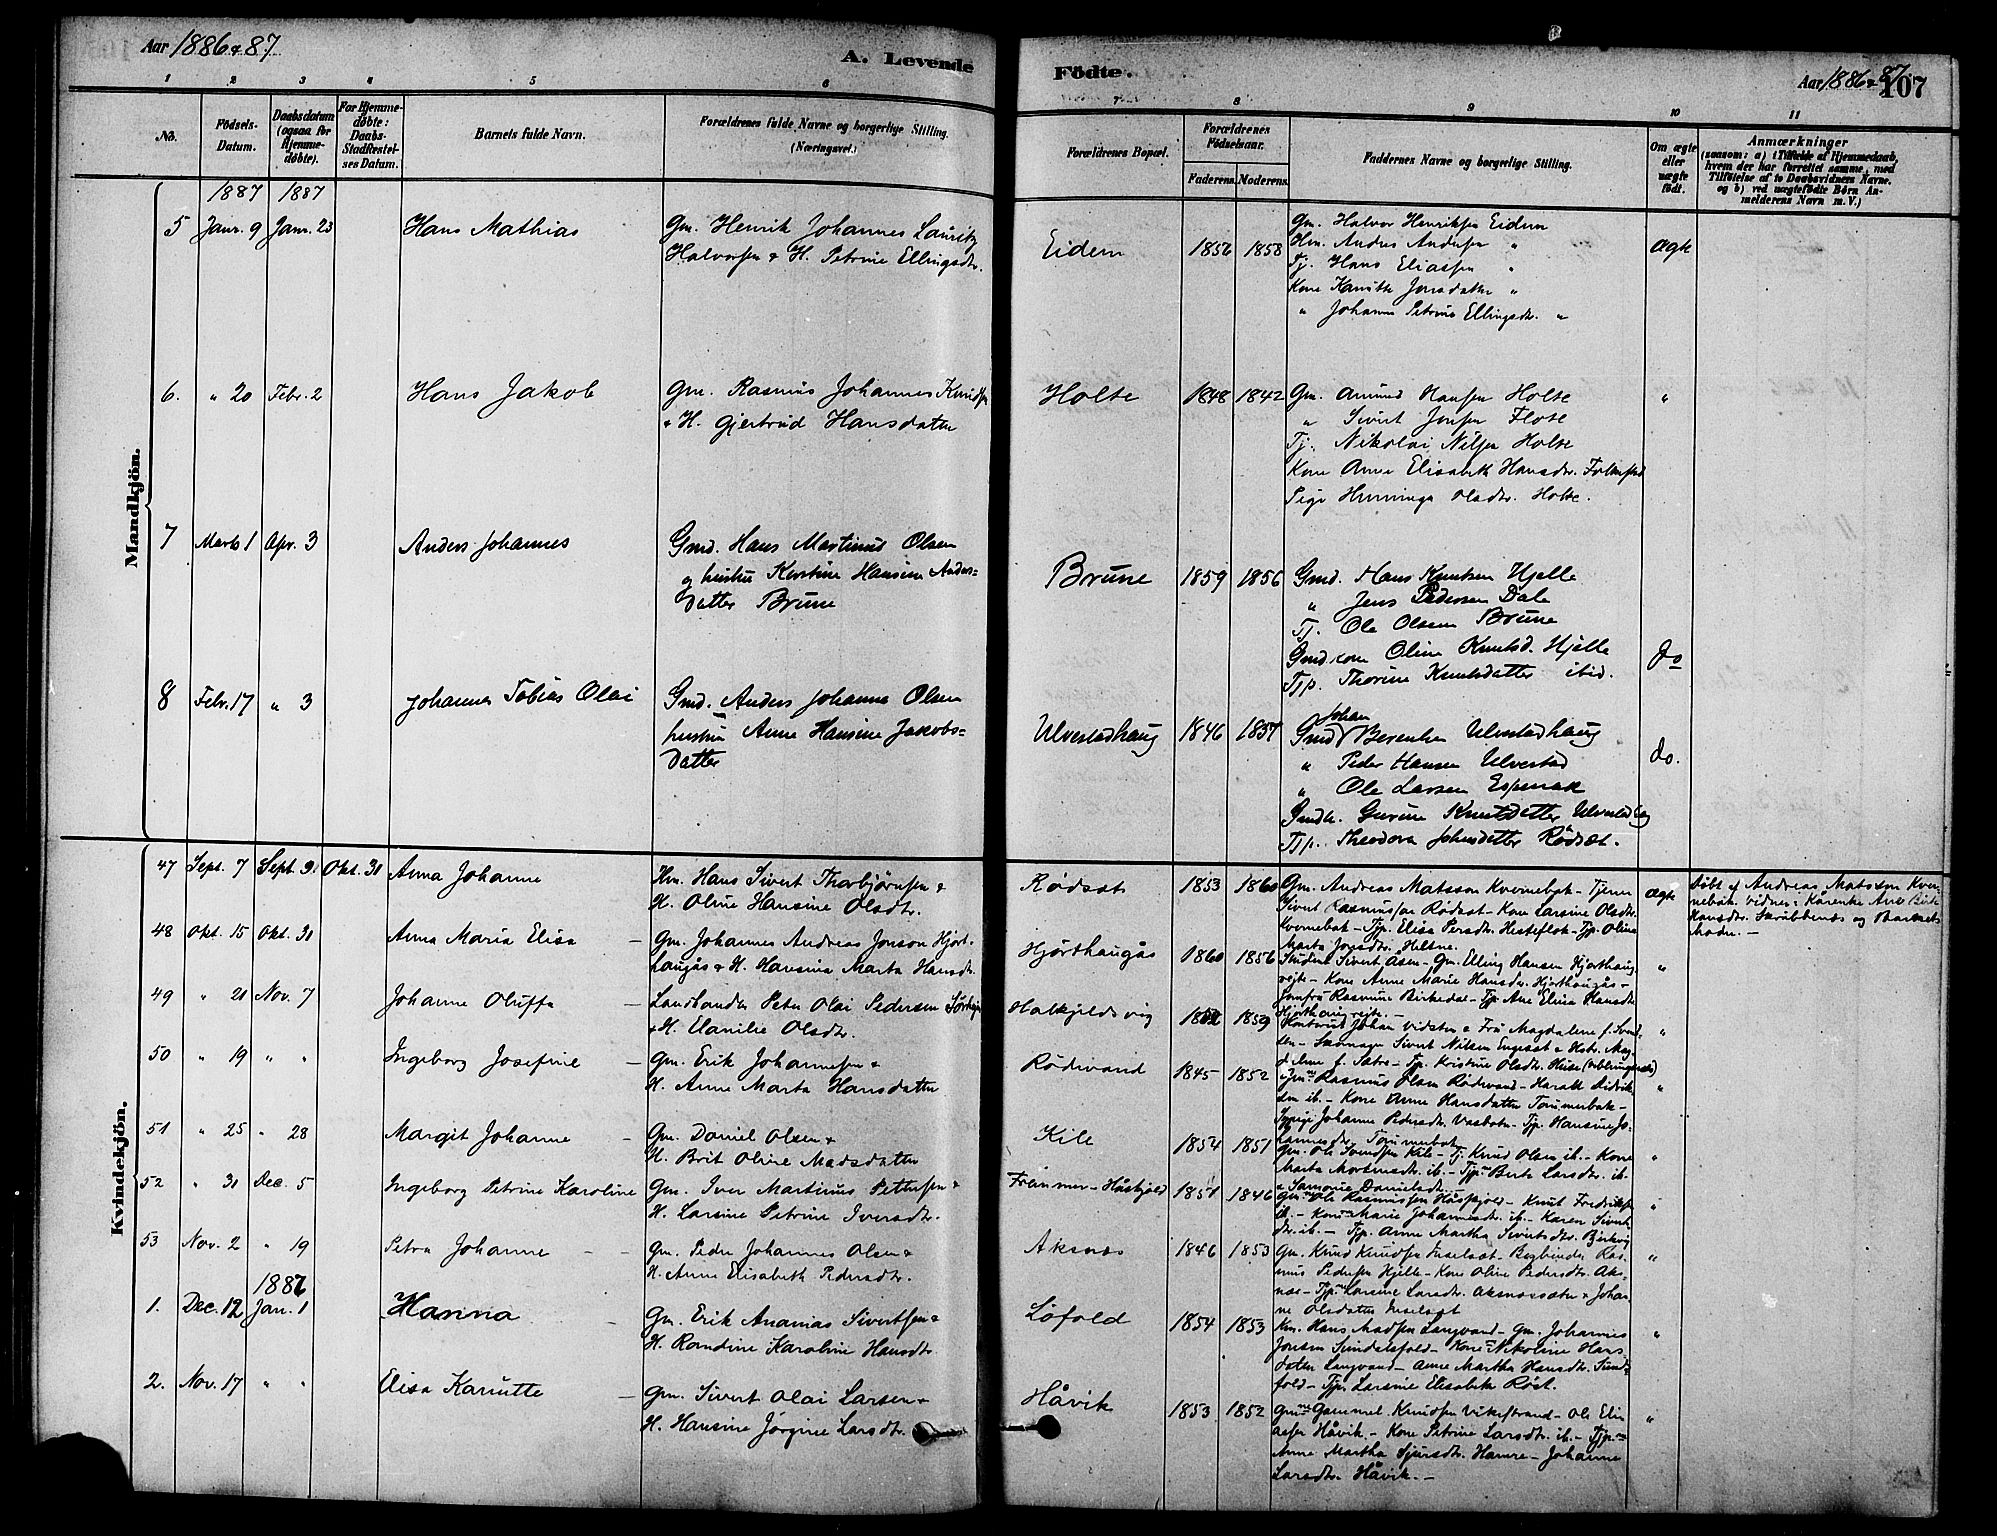 Aar 1886 & 87
A. Levende Födte.
Aar 1886 & 87
107
1 2 3 4 5 6 7 8 9 10 11
No. Födsels-Datum. Daabsdatum (ogsaa for Hjemmedøbte). For Hjemmedøbte: Daabs-Stadfæstelses Datum. Barnets fulde Navn. Forældrenes fulde Navne og borgerlige Stilling. (Næringsvei.)
Forældrenes Bopæl. Forældrenes Fødselsaar. Faderens. Moderens. Faddernes Navne og borgerlige Stilling. Om ægte eller uægte født. Anmærkninger (saasom: a) i Tilfælde af Hjemmedaab, hvem der har forrettet samme, med Tilføielse af to Daabsvidners Navne, og b) ved uægtefødte Børn Anmelderens Navn m. V.)
Mandkjön.
1887 1887
5 Janr. 9 Janr. 23 Hans Mathias Gm. Henrik Johannes Lauritz
Halvorsen & H. Petrine Ellingsdtr.
Eidem 1856 1858 ægte
Gm. Halvor Henriksen Eidem
Hm. Andres Andersen "
Tj. Hans Eliassen "
Kone Karitte Jonsdatter "
" Johanne Petrine Ellingsdtr. "
6. " 20 Febr. 2 Hans Jakob Gm. Rasmus Johannes Knudsen
& H. Gjertrud Hansdatter
Holte 1848 1842 "
Gm. Amund Hansen Holte
" Sivert Jonsen Flote
Tj. Nikolai Nilsen Holte
Kone Anne Elisabeth Hansdr. Folkestad
Pige Henninga Olsdtr. Holte.
7 Marts 1 Apr. 3 Anders Johannes Gmd. Hans Martinus Olsen
og hustru Kirstine Hansine Anders=
datter Brune
Brune 1859 1856 do
Gmd. Hans Knutsen Hjelle
" Jens Pedersen Dale
Tj. Ole Olsen Brune
Gmd kone Oline Knutsd. Hjelle
Tjp. Thorine Knutsdatter ibid.
8 Febr. 17 " 3 Johannes Tobias Olai Gmd. Anders Johannes Olsen
hustru Anne Hansine Jakobs=
datter
Ulvestadhaug 1846 1857 do.
Gmd Johan Berentsen Ulvestadhaug
" Peder Hansen Ulvestad
" Ole Larsen Espenak
Gmdk. Gurine Knutsdatter Ulvestadhg
Tjp. Theodora Johnsdatter Rödsæt.
Kvindekjön.
47 Sept. 7 Sept. 9. Okt. 31 Anna Johanne Hm. Hans Sivert Thorbjørnsen &
H. Oline Hansine Olsdtr.
Rødsæt 1853 1860 ægte
Gm. Andreas Matsson Kvernebak - Tjener
Sivert Rasmussen Rødsæt - Kone Larsine Olsdtr.
Kvernebak - Tjp. Elisa Persdtr. Hesteflok - Tjp. Oline
Marta Jonsdtr. Heltne.
Døbt af Andreas Matsson Kver-
nebak. Vidner: Karenke Ane Birte
Hansdtr. Skrubbenes og Barnets
Moder. -
48 Okt. 15 Okt. 31 Anna Maria Elisa - Gm. Johannes Andreas Jonson Hjort-
haugås & H. Hansina Marta Hansdtr.
Hjørthaugås 1860 1856 "
Student Sivert Asen - Gm. Elling Hansen Hjorthaug-
rejte - Kone Anne Marie Hansdr. Hjorthaugås -
Jomfru Rasmine Birkedal - Tjp. Ane Elisa Hansdtr
Hjorthaugrejte. -
49 " 21 Nov. 7 Johanne Oluffa - Landhandler Peter Olai Pedersen
& H. Elanilie Olsdtr.
Halkjeldsvig 1859 "
Kontorist Johan Vidsten & Fru Magdalene f. Svend-
sen - Skomager Sivert Nilsen Engeset & Hstr. Mag-
dalene f. Sætre - Tjp. Kristine Olsdtr. Huse
50 " 19 " " Ingeborg Josefine - Gm. Erik Johannesen &
H. Anne Marta Hansdatter
Rødivand 1845 1852 "
Gm. Rasmus Olsen Rødevand - Harald Didrik-
sen ib. - Kone Anne Hansdatter Tommerbak -
Johanne Pedersdtr. Vasbotn - Tjp. Hansine Jo-
hannesdtr. Tommerbak
51 " 25 " 28 Margit Johanne - Gm. Daniel Olsen &
H. Brit Oline Madsdatter
Kile 1854 1851 "
Gm. Ole Svendsen Kile - Tj. Knud Olsen ib. - Kone
Marta Mortensdtr. ib. - Tjp. Berte Larsdtr. ib.
& Samonie Danielsdtr. -
52 " 31 Dec. 5 Ingeborg Petrine Karoline Gm. Iver Martinus Pettersen &
H. Larsine Petrine Iversdtr.
Frammer-Håskjold 1851 1846 "
Gm. Ole Rasmussen Håskjold - Knut Fredriksen
ib. - Kone Marie Johannesdtr. ib. - Karen Sivert-
dtr. ib. - Tjp. Anne Martha Sivertsdtr. Birkvig
53 Nov. 2 " 19 Petra Johanne - - Gm. Peder Johannes Olsen &
H. Anne Elisabeth Pedersdtr.
Aksnæs 1846 1853 "
Gm. Knud Knudsen Inselset - Bogbinder Ras-
mus Pedersen Hjelle - Kone Oline Pedersdtr. Aks-
næs - Tjp. Larsine Larsdtr. Aksnessæter & Johan-
ne Olsdatter Inselset
1887
1. Dec. 12 Jan. 1 Hanna Gm. Erik Ananias Sivertsen &
H. Randine Karoline Hansdtr
Løfold 1854 1853 "
Km. Hans Madsen Langvand - Gm. Johannes
Jonsen Sundalsfold - Kone Nikoline Hans-
datter Langvand - Anne Martha Hansdtr. Sund-
fold - Tjp. Larsine Elisabeth Røst.
2. Nov. 17 " " Elisa Karutte - Gm. Sivert Olai Larsen &
H. Hansine Jørgine Larsdtr.
Håvik 1853 1852 "
Gm. Gammel Knudsen Vikestrand - Ole Eli-
assen Håvik - Kone Petrine Larsdtr. ib. - Tjp.
Anne Martha Sjursdtr. Hamre - Johanne
Larsdtr. Håvik. -